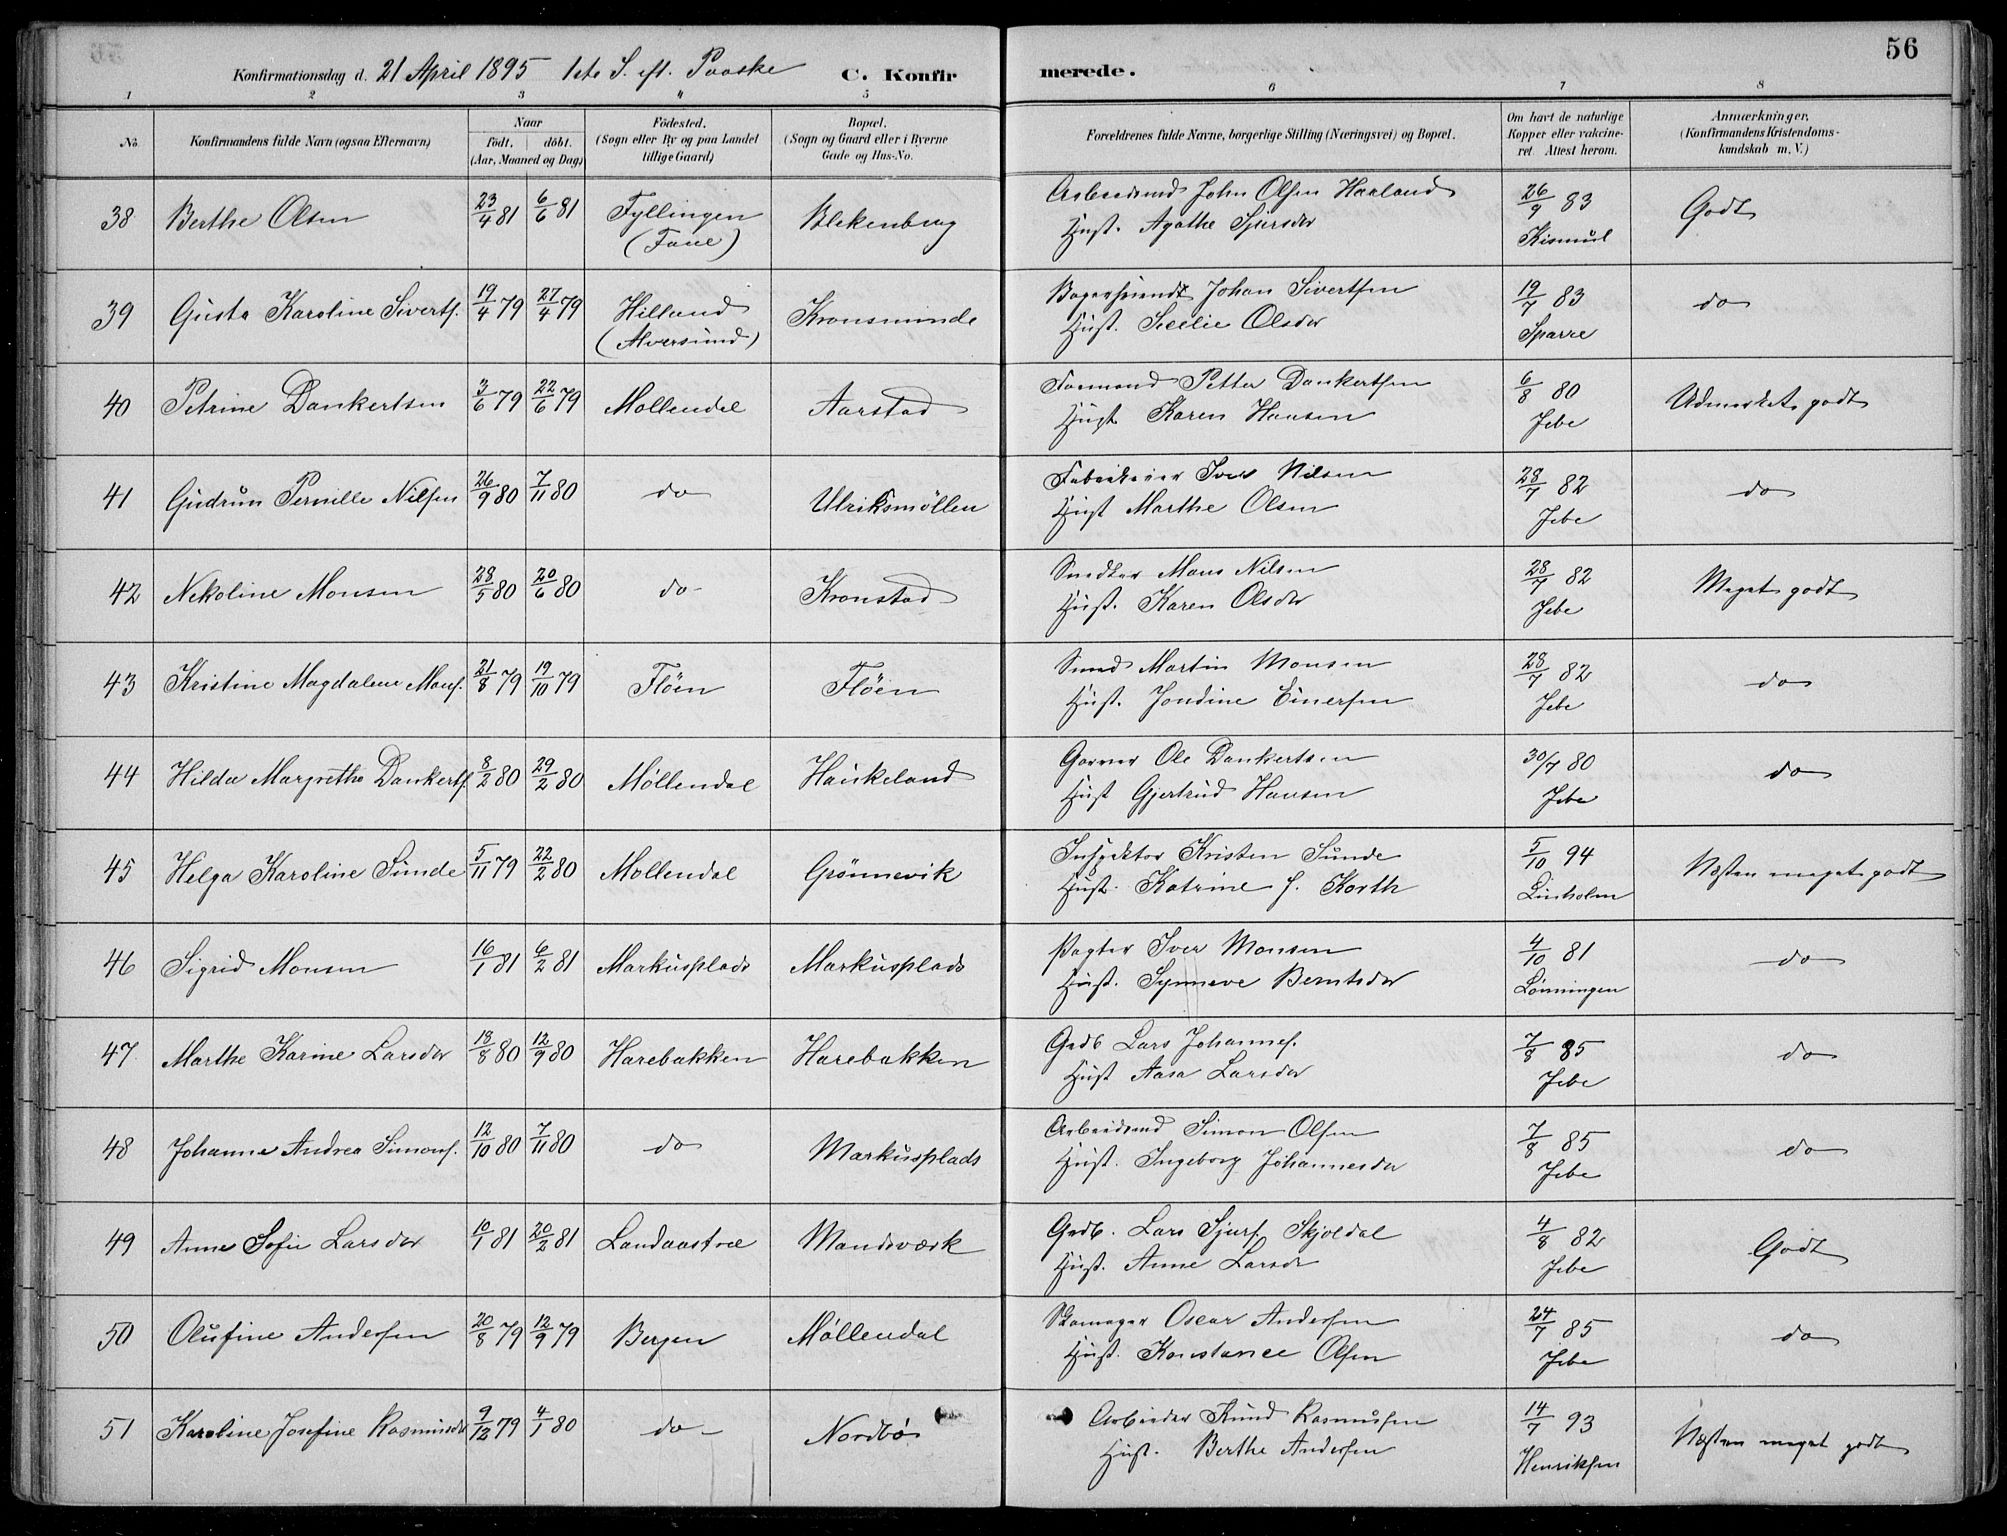 56
Konfirmationsdag d. 21 April 1895 1ste S. eft. Paaske C. Konfirmerede.
1 2 3 4 5 6 7 8
No. Konfirmandens fulde Navn (ogsaa Efternavn) Naar født. døbt. (Aar, Maaned og Dag) Födested. (Sogn eller By og paa Landet tillige Gaard) Bopæl. (Sogn og Gaard eller i Byerne Gade og Hus-No. Forældrenes fulde Navne, borgerlige Stilling (Næringsvei) og Bopæl. Om havt de naturlige Kopper eller vakcineret. Attest herom. Anmærkninger, (Konfirmandens Kristendomskundskab m. V.)
38 Berthe Olsen 23/4 81 6/6 81 Fyllingen (Fane) Blekenberg Arbeidsmd John Olsen Haaland 26/9 83 Godt
Hust. Agathe Sjursdr Kismul
39 Gusta Karoline Siverts. 19/4 79 27/4 79 Hilland (Alversund) Kronsminde Bagersvend Johan Sivertsen 19/7 83 do
Hust. Secelie Olsdr Sparre
40 Petrine Dankertsen 3/6 79 22/6 79 Møllendal Aarstad Formand Petter Dankertsen 6/8 80 Udmerket godt
Hust Karen Hansen Jebe
41 Gudrun Pernille Nilsen 26/9 80 7/11 80 do Ulriksmøllen Iver Nilsen 28/7 82 do
Hust Marthe Olsen Jebe
42 Nikoline Monsen 28/5 80 20/6 80 do Kronstad Snedker Mons Nilsen 28/7 82 Meget godt
Hust. Karen Olsdr Jebe
43 Kristine Magdalene Mons. 21/8 79 19/10 79 Fløen Fløen Smed Martin Monsen 28/7 82 do
Hust. Jondine Einersen Jebe
44 Hilda Margrethe Dankerts. 8/2 80 29/2 80 Møllendal Haukeland Garver Ole Dankertsen 30/7 80 do
Hust Gjertrud Hansen Jebe
45 Helga Karoline Sunde 5/11 79 22/2 80 Møllendal Grønnevik Inspektør Kristen Sunde 5/10 94 Næsten meget godt
Hust. Katrine f. Korth Linholm
46 Sigrid Monsen 16/1 81 6/2 81 Markusplads Markusplads Pagter Iver Monsen 4/10 81 do
Hust. Synneve Berntsdr Lønningen
47 Marthe Karine Larsdr 18/8 80 12/9 80 Harebakken Harebakken Gdb Lars Johannes. 7/8 85 do
Hust Aasa Larsdr Jebe
48 Johanne Andrea Simons. 12/10 80 7/11 80 do Markusplads Arbeidsmd Simon Olsen 7/8 85 do
Hust. Ingeborg Johannesdr Jebe
49 Anne Sofie Larsdr 10/1 81 20/2 81 Landaastræ Mandsværk Gdb. Lars Sjurs. Skjoldal 4/8 82 Godt
Hust. Anne Larsdr Jebe
50 Olufine Andersen 20/8 79 12/9 79 Bergen Møllendal Skomager Oscar Andersen 24/7 85 do
Hust. Konstance Olsen Jebe
51 Karoline Josefine Rasmusdr 9/12 79 4/1 80 do Nordbø Arbeider Knud Rasmussen 14/7 93 Næsten meget godt
Hust. Berthe Andersen Henriksen